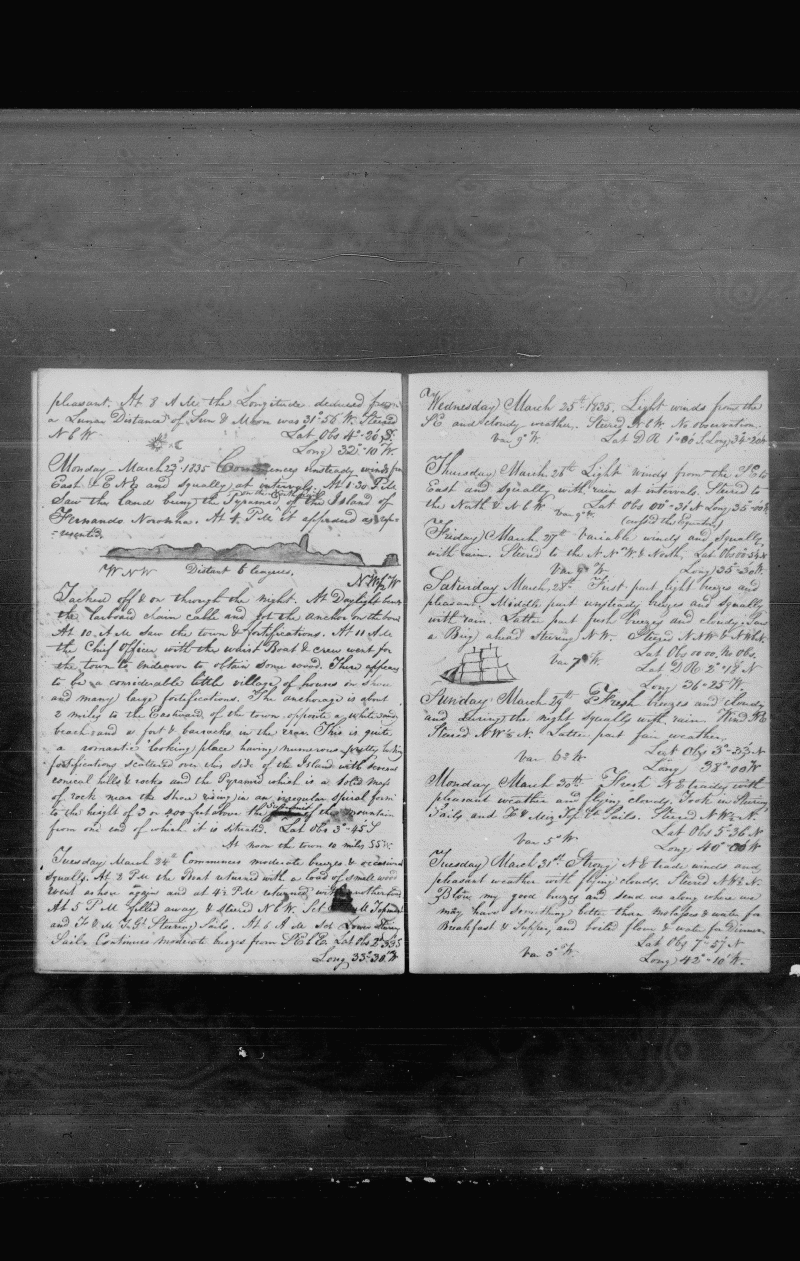 pleasant. At 8 A M. the Longitude deduced from
a Lunar Distance of Sun & Moon was 31°-56' W. Steered
N b W. Lat Obs 4°-20' S.
Long 32°-10' W.
Monday March 23d 1835 Commences unsteady winds from
East & E N E and Squally at intervals. At 1.30 P M
Saw the land being the Pyramid of the Island of
Fernando Noronha. At 4 P M it appeared as repre
-sented.
W N W Distant 6 leagues. N W b W
Tacked off & on through the night. At Daylight
the larboard chain cable and got the anchor on the bow
At 10 A M Saw the town & fortifications. At 11 A M
the Chief Officer with the Waist Boat & crew went for
the town to endeavor to obtain some wood. There appears
to be a considerable little village of houses on shore
and many large fortifications. The anchorage is about
2 miles to the Eastward of the town opposite a white sandy
beach and a fort & barracks in the rear. This is quite
a romantic looking place having numerous pretty looking
fortifications scattered over this side of the Island with several
conical hills & rocks and the Pyramid which is a solid mass
of rock near the shore rising in an irregular spiral form
to the height of 3 or 400 feet above the of the mountain
from one end of which it is situated. Lat Obs 3°-45' S
At noon the town 10 miles
Tuesday March 24th Commences moderate breezes & occasional
Squally. At 2 P M the Boat returned with a load of small wood
went ashore again and at 4½ P M returned with another
At 5 P M filled away & Steered N b W. Set
and F & M Steering Sails. At 6 A M Set Lower Steering
Sails. Continues moderate breezes from S E b E. Lat Obs
Long 33°-30' W
Wednesday March 25th 1835. Light winds from the
S E and cloudy weather. Steered N b W. No observation.
Var 9° W. Lat D R 1°-00 S. Long 34°-20 W
Thursday March 26th Light winds from the S E to
East and Squally with rain at intervals. Steered to
the North & N b W. Lat Obs 00°-31' N Long 35°-00 W
Var 9° W. (crossed the Equator)
Friday March 27th Variable winds and Squally
with rain. Steered to the N N W & North. Lat Obs
Var W. Long 35°-30 W.
Saturday March 28th First part light breezes and
pleasant. Middle part unsteady breezes and Squally
with rain. Latter part fresh breezes and cloudy. Saw
a Brig ahead Steering N W. Steered N N W &
Lat Obs 00 00. No Obs.
Var 7° W. Lat D R 2°-18' N
Long 36°-25' W.
Sunday March 29th Fresh breezes and cloudy
and during the night squally with rain. Wind
Steered N W ½ N. Latter part fair weather.
Lat Obs 3°-33' N
Var 6° W Long 38°-00 W
Monday March 30th Fresh N E trades with
pleasant weather and flying clouds. Took in Steering
Sails and F & Miz Top Gt Sails. Steered N W ½ N.
Lat Obs 5°-36 N
Var 5° W Long 40°-00 W
Tuesday March 31st Strong N E trade winds and
pleasant weather with flying clouds. Steered N W ½ N.
Blow my good breezes and send us along where we
may have something better than molasses & water for
Breakfast & Supper, and boiled flour & water for Dinner.
Lat Obs 7°-57' N
Var 5° W. Long 42°-10' W.